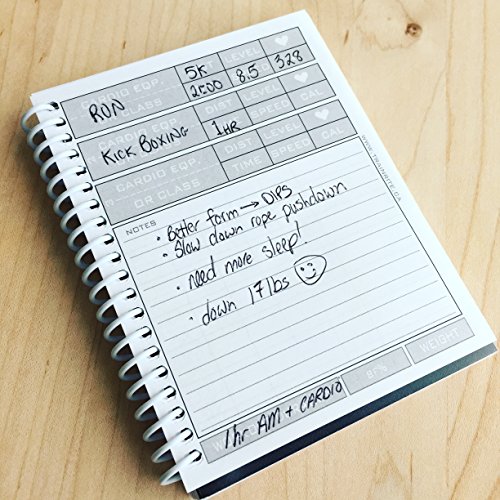 CARDIO EQP.
OR CLASS
RUN
5K
2500
LEVEL
8.5
328
CARDIO EQP.
OR CLASS
KICK BOXING
DIST
1HR
LEVEL
SPEED
CAL
CARDIO EQP.
OR CLASS
DIST
TIME
LEVEL
SPEED
CAL
WWW.TRAINRITE.CA
NOTES
• Better form → DIPS
• Slow down rope pushdown
• need more sleep!
• down 17 lbs
1hr AM + CARDIO
BF%
WEIGHT